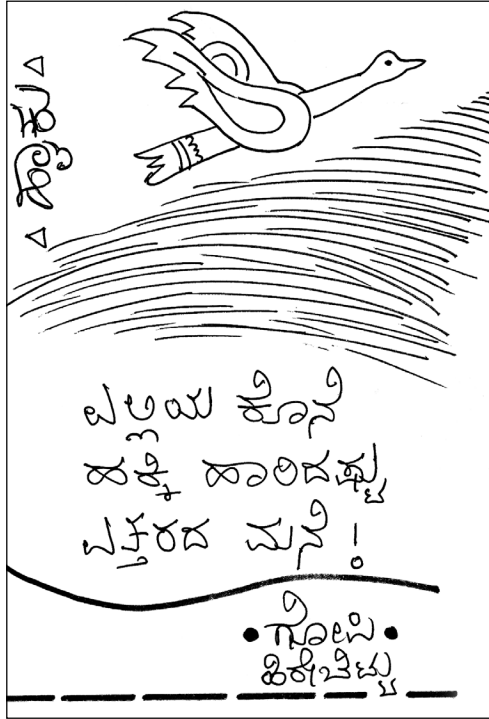 ಎಲ್ಲಿಯ ಕೊನೆ
ಹಕ್ಕಿ ಹಾರಿದಷ್ಟು
ಎತ್ತರದ ಮನೆ !
• ಗೋಪಿ •
ಹಿರೇಬೆಟ್ಟು